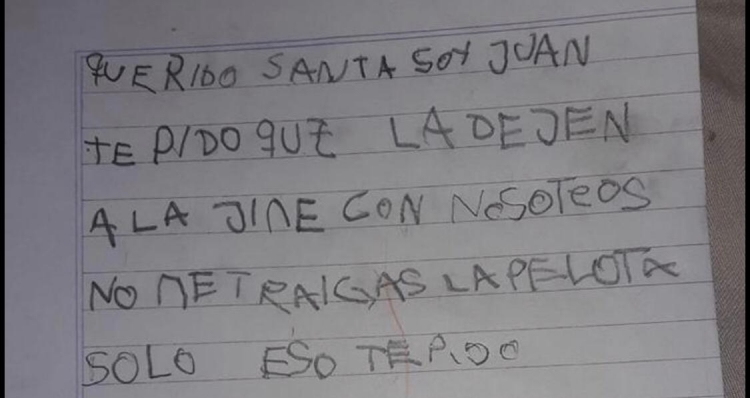 QUERIDO SANTA SOY JUAN
TE PIDO QUE LA DEJEN
A LA JINE CON NOSOTEOS
NO ME TRAIGAS LA PELOTA
SOLO ESO TE PIDO